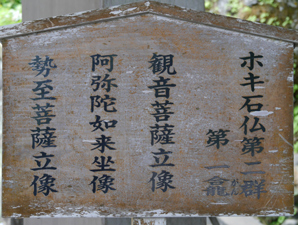 ホキ石仏第二群
第一龕
観音菩薩立像
阿弥陀如来坐像
勢至菩薩立像